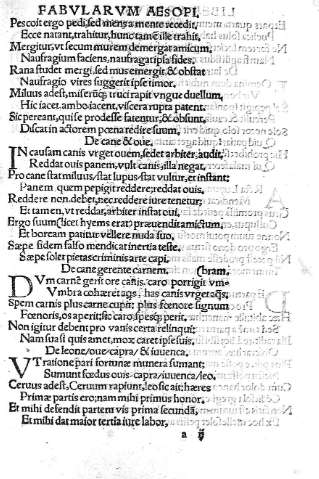 FABVLARVM AESOPI.
Pes coit ergo pedi, sed mens a mente recedit,
Ecce natant, trahitur, hunc tamē ille trahit,
Mergitur, vt secum murem demergat amicum,
Naufragium faciens, naufragat ipsa fides,
Rana studet mergi, sed mus emergit, & obstat
Naufragio vires suggerit ipse timor,
Miluus adest, miserūq; truci rapit vngue duellum,
Hic iacet, ambo iacent, viscera rupta patent.
Sic pereant, qui se prodesse fatentur, & obsunt,
Discat in actorem pœna redire suum,
De cane & oue,
IN causam canis vrget ouem, sedet arbiter, audit,
Reddat ouis panem, vult canis, illa negat,
Pro cane stat miluus, stat lupus, stat vultur, et instant:
Panem quem pepigit reddere, reddat ouis,
Reddere non debet, nec reddere iure tenetur,
Et tamen, vt reddat, arbiter instat oui,
Ergo suum (licet hyems erat) præuendit amictum,
Et boream patitur vellere nuda suo,
Sæpe fidem falso mendicat inertia teste,
Sæpe solet pietas criminis arte capi.
De cane gerente carnem, (bram.
DVm carnē gerit ore canis, caro porrigit vm-
Vmbra cohæret aqs, has canis vrget aqs,
Spem carnis plus carne cupit, plus fœnore signum
Fœnoris, os aperit, sic caro, spesq; perit,
Non igitur debent pro vanis certa relinqui:
Nam sua si quis amet, mox caret ipse suis,
De leone, oue, capra, & iuuenca,
VT ratione pari fortunæ munera sumant:
Sumunt fœdus ouis, capra, iuuenca, leo,
Ceruus adest, Ceruum rapiunt, leo sic ait: hæres
Primæ partis ero, nam mihi primus honor,
Et mihi defendit partem vis prima secundā,
Et mihi dat maior tertia iure labor,
a